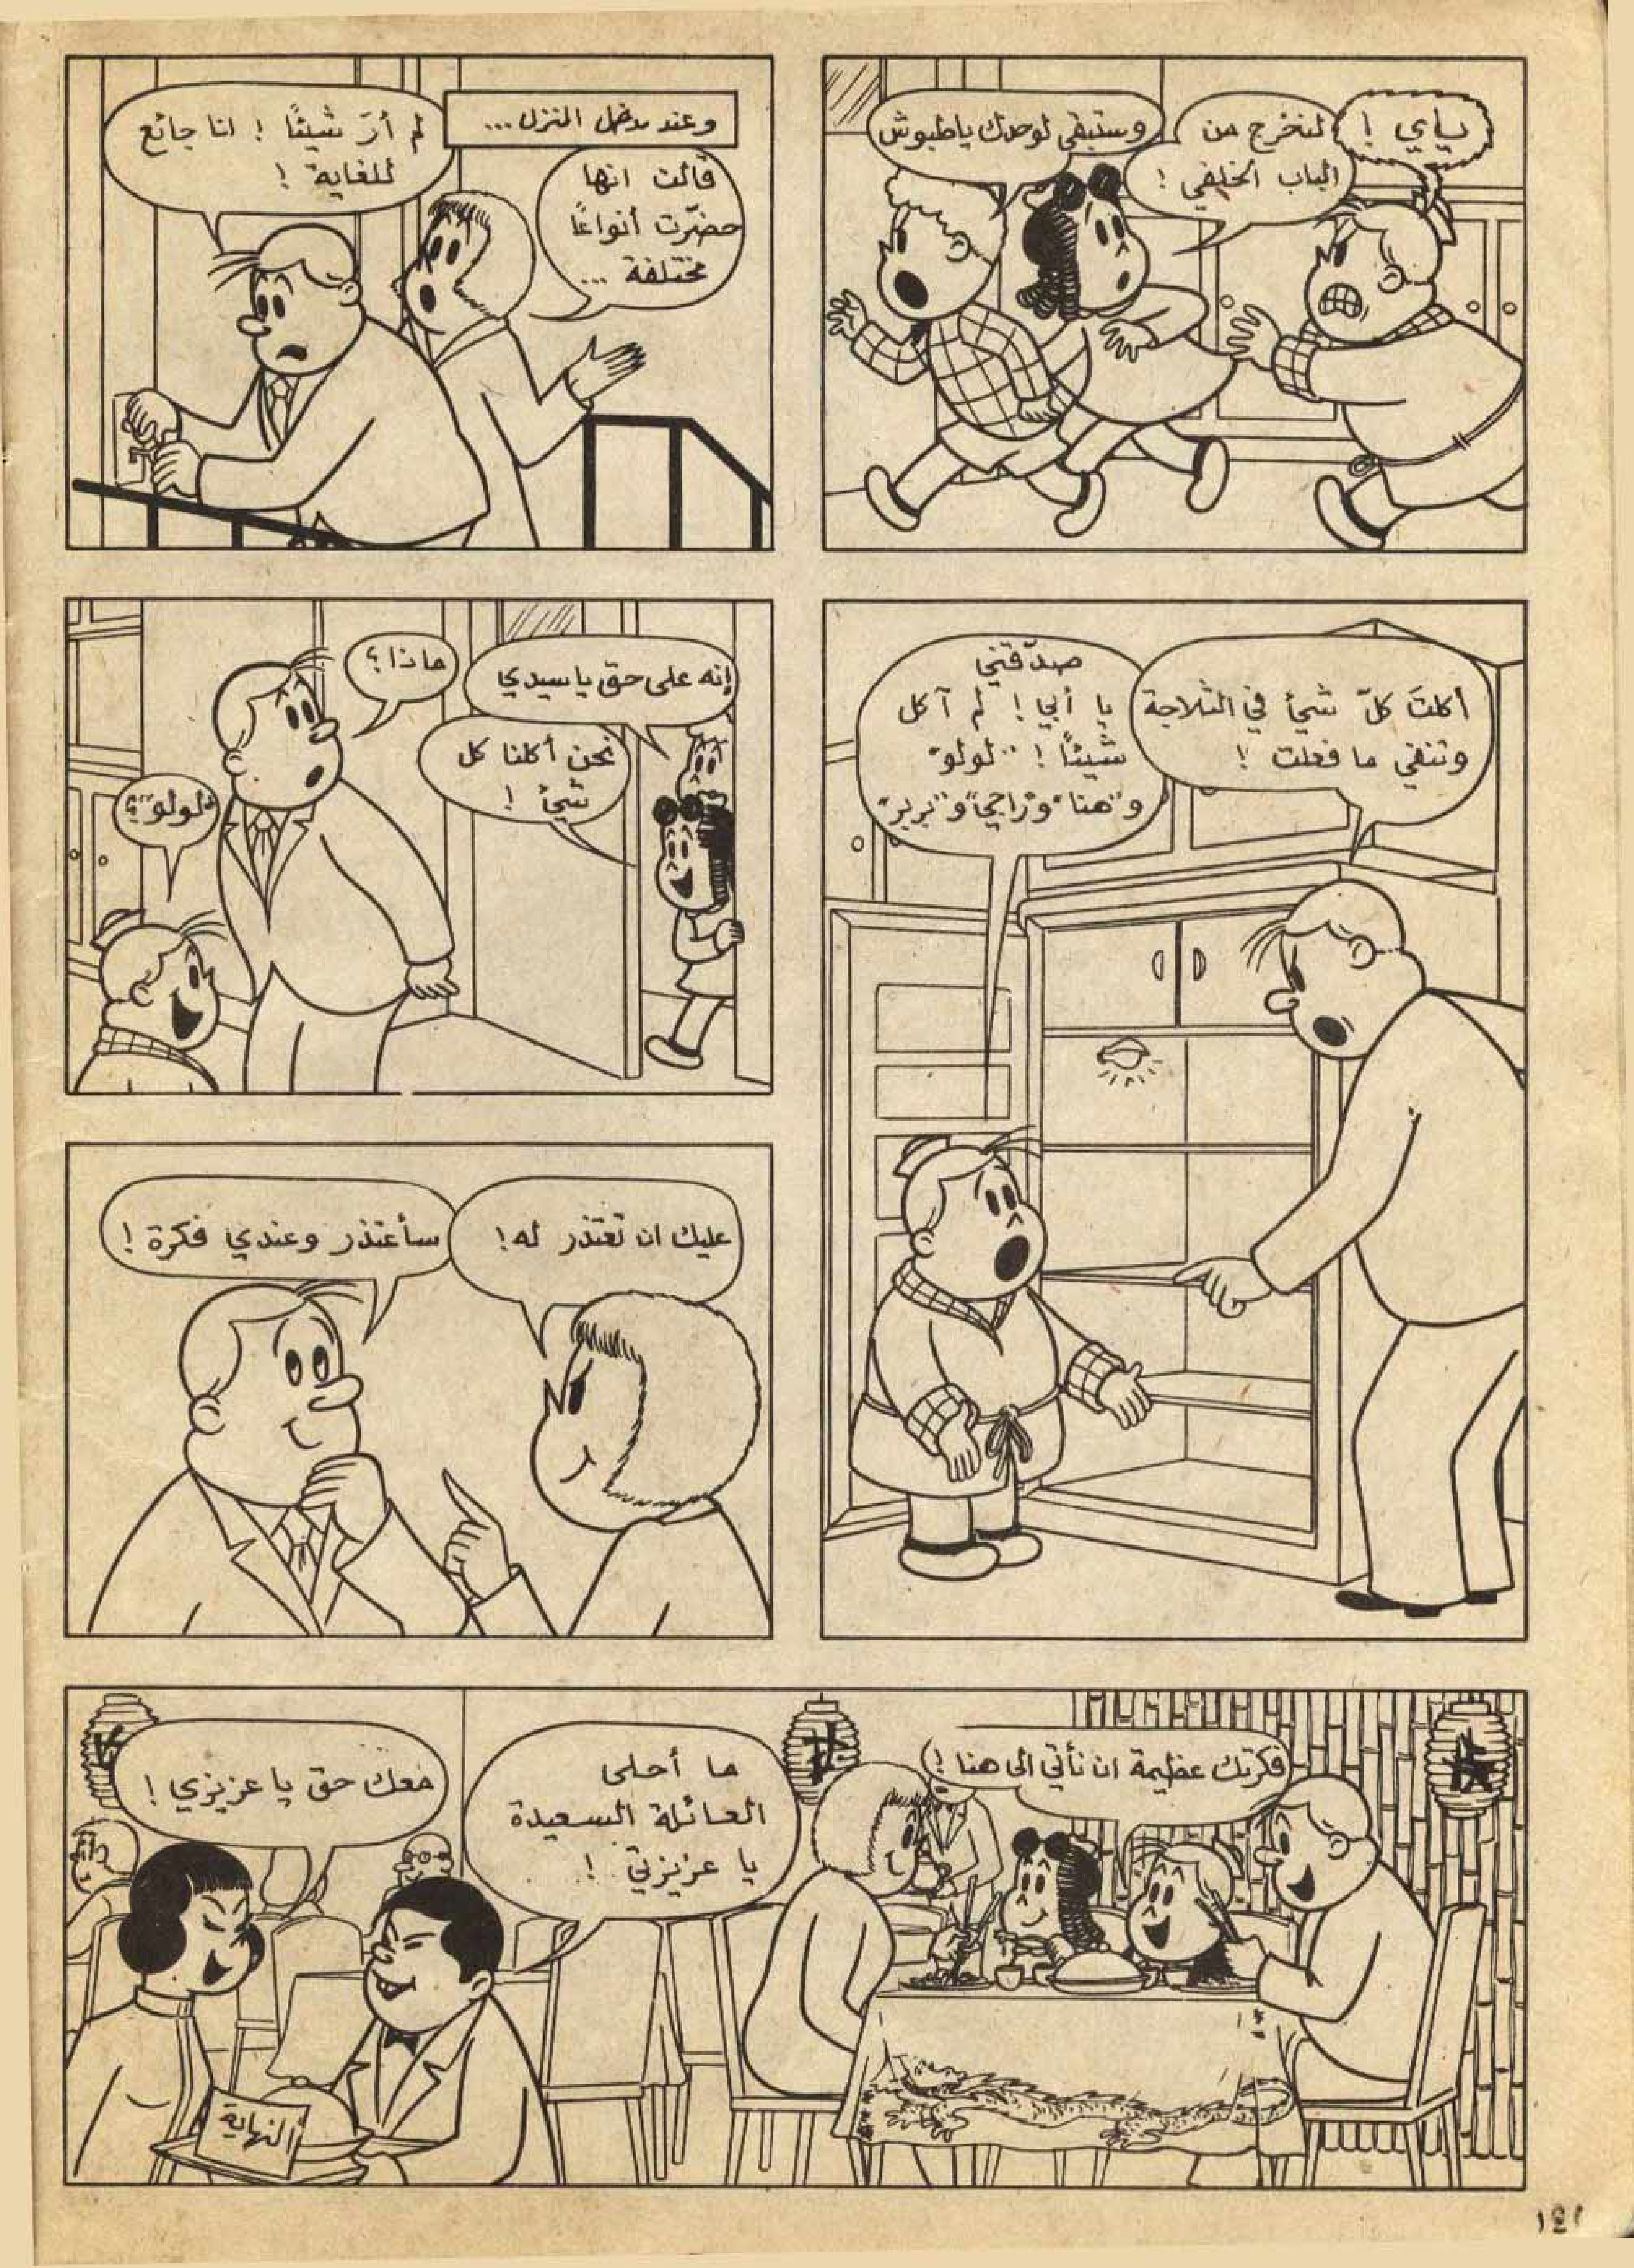 يااي !
لنخرج من
الباب الخلفي !
وستبقى لوحدك ياطبوش
وعند مدخل المنزل ...
قالت انها
حضّرت أنواعًا
مختلفة ...
لم أرَ شيئًا ! انا جائع
للغاية !
أكلتَ كلّ شيئ في الثلاجة
وتنفي ما فعلت !
صدّقني
يا أبي ! لم آكل
شيئًا ! .. "لولو"
و"هنا" و"راجي" و"بربر"
إنه على حق يا سيدي
نحن أكلنا كل
شيئ !
ماذا ؟
"لولو" ؟
عليك ان تعتذر له !
سأعتذر وعندي فكرة !
فكرتك عظيمة ان نأتي الى هنا !
ما أحلى
العائلة السعيدة
يا عزيزتي !
معك حق يا عزيزي !
النهاية